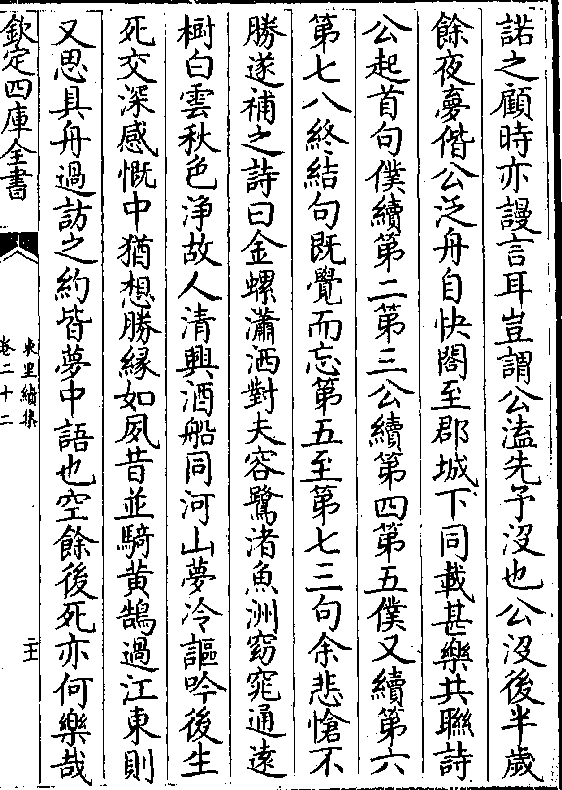 諾之顧時亦謾言耳豈謂公溘先予沒也公沒後半歲
餘夜夢偕公泛舟自快閣至郡城下同載甚樂共聯詩
公起首句僕續第二第三公續第四第五僕又續第六
第七八終結句既覺而忘第五至第七三句余悲愴不
勝遂補之詩曰金螺瀟洒對夫容鷺渚魚洲窈窕通遠
樹白雲秋色淨故人清興酒船同河山夢冷謳吟後生
死交深感慨中猶想勝緣如夙昔並騎黃鵠過江東則
又思具舟過訪之約皆夢中語也空餘後死亦何樂哉
欽定四庫全書
東里續集
卷二十二